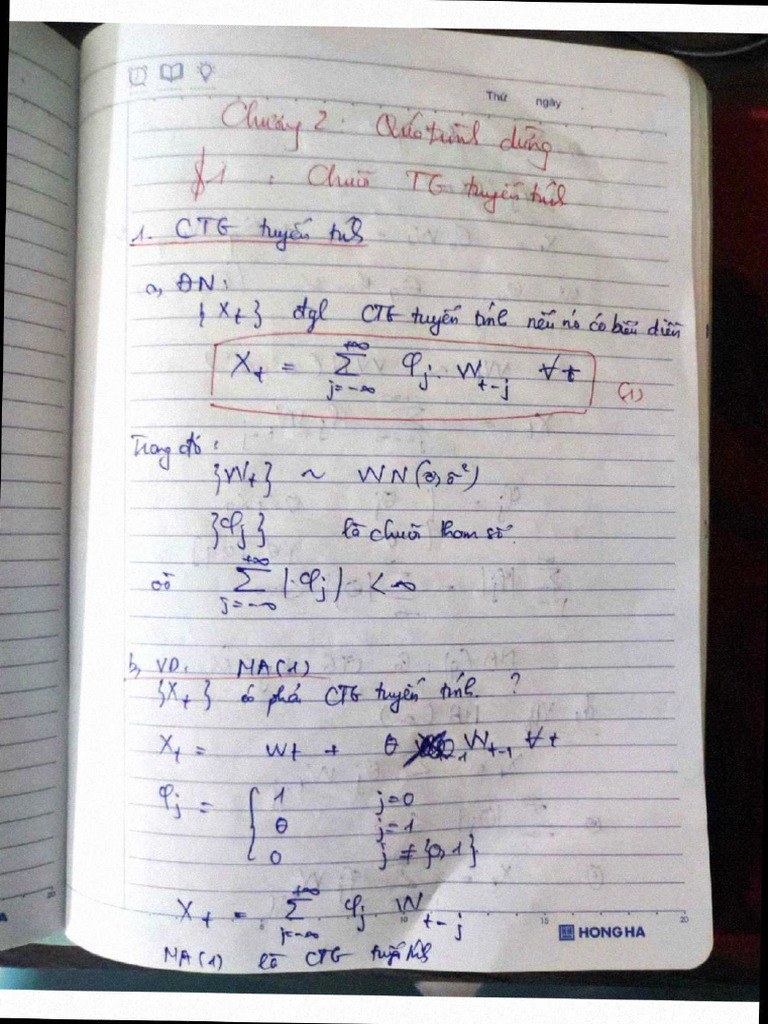 Thứ ngày
Chương 2: Quá trình dừng
§1: Chuỗi TG tuyến tính
1. CTG tuyến tính
a, ĐN:
{X_t} đgl CTG tuyến tính nếu nó có biểu diễn
X_t = ∑_{j=-∞}^{+∞} φ_j . W_{t-j} ∀t (1)
Trong đó:
{W_t} ~ WN(0,σ²)
{φ_j} là chuỗi tham số
∑_{j=-∞}^{+∞} |φ_j| < ∞
b, VD. MA(1)
{X_t} có phải CTG tuyến tính ?
X_t = W_t + θ W_{t-1} ∀t
φ_j = { 1 j=0
θ j=1
0 j ≠ {0,1}
X_t = ∑_{j=-∞}^{+∞} φ_j W_{t-j}
5 10 15 20
HONG HA
MA(1) là CTG tuyến tính